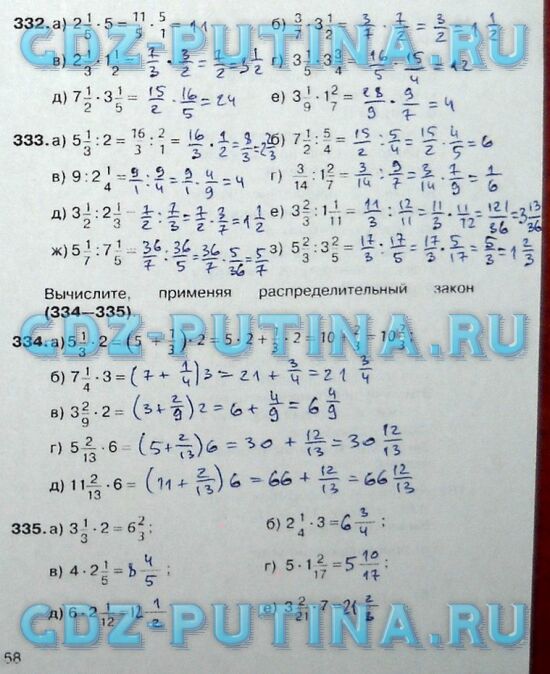 332. а) 2 1/5 · 5 = 11/5 · 5/1 = 11 б) 3/7 · 3 1/2 = 3/7 · 7/2 = 3/2 = 1 1/2
GDZ-PUTINA.RU
в) 2 1/3 · 1 1/2 = 7/3 · 3/2 = 7/2 = 3 1/2 г) 3 1/5 · 3 3/4 = 16/5 · 15/4 = 12
д) 7 1/2 · 3 1/5 = 15/2 · 16/5 = 24 е) 3 1/9 · 1 2/7 = 28/9 · 9/7 = 4
333. а) 5 1/3 : 2 = 16/3 : 2/1 = 16/3 · 1/2 = 8/3 = 2 2/3 б) 7 1/2 : 5/4 = 15/2 : 5/4 = 15/2 · 4/5 = 6
в) 9 : 2 1/4 = 9/1 : 9/4 = 9/1 · 4/9 = 4 г) 3/14 : 1 2/7 = 3/14 : 9/7 = 3/14 · 7/9 = 1/6
д) 3 1/2 : 2 1/3 = 7/2 : 7/3 = 7/2 · 3/7 = 1 1/2 е) 3 2/3 : 1 1/11 = 11/3 : 12/11 = 11/3 · 11/12 = 121/36 = 3 13/36
ж) 5 1/7 : 7 1/5 = 36/7 : 36/5 = 36/7 · 5/36 = 5/7 з) 5 2/3 : 3 2/5 = 17/3 : 17/5 = 17/3 · 5/17 = 5/3 = 1 2/3
GDZ-PUTINA.RU
Вычислите, применяя распределительный закон
(334—335).
GDZ-PUTINA.RU
334. а) 5 1/3 · 2 = (5 + 1/3) · 2 = 5 · 2 + 1/3 · 2 = 10 + 2/3 = 10 2/3;
б) 7 1/4 · 3 = (7 + 1/4) 3 = 21 + 3/4 = 21 3/4
в) 3 2/9 · 2 = (3 + 2/9) 2 = 6 + 4/9 = 6 4/9
г) 5 2/13 · 6 = (5 + 2/13) 6 = 30 + 12/13 = 30 12/13
д) 11 2/13 · 6 = (11 + 2/13) 6 = 66 + 12/13 = 66 12/13
335. а) 3 1/3 · 2 = 6 2/3; б) 2 1/4 · 3 = 6 3/4;
в) 4 · 2 1/5 = 8 4/5; г) 5 · 1 2/17 = 5 10/17;
д) 6 · 2 1/12 = 12 1/2 е) 3 2/21 · 7 = 21 2/3
GDZ-PUTINA.RU
58